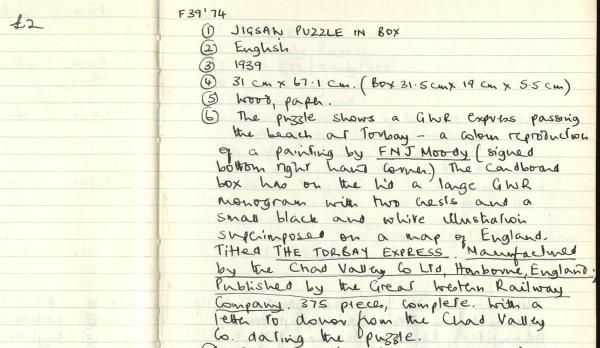 £2
F39'74
① JIGSAW PUZZLE IN BOX
② English
③ 1939
④ 31 cm x 67.1 cm. (Box 31.5cm x 19 cm x 5.5 cm)
⑤ Wood, paper.
⑥ The puzzle shows a GWR express passing
the beach at Torbay - a colour reproduction
of a painting by FNJ Moody (signed
bottom right hand corner.) The cardboard
box has on the lid a large GWR
monogram with two crests and a
small black and white illustration
superimposed on a map of England.
Titled THE TORBAY EXPRESS. Manufactured
by the Chad Valley Co Ltd, Harborne, England;
Published by the Great Western Railway
Company. 375 pieces, complete. With a
letter to donor from the Chad Valley
Co. dating the puzzle.